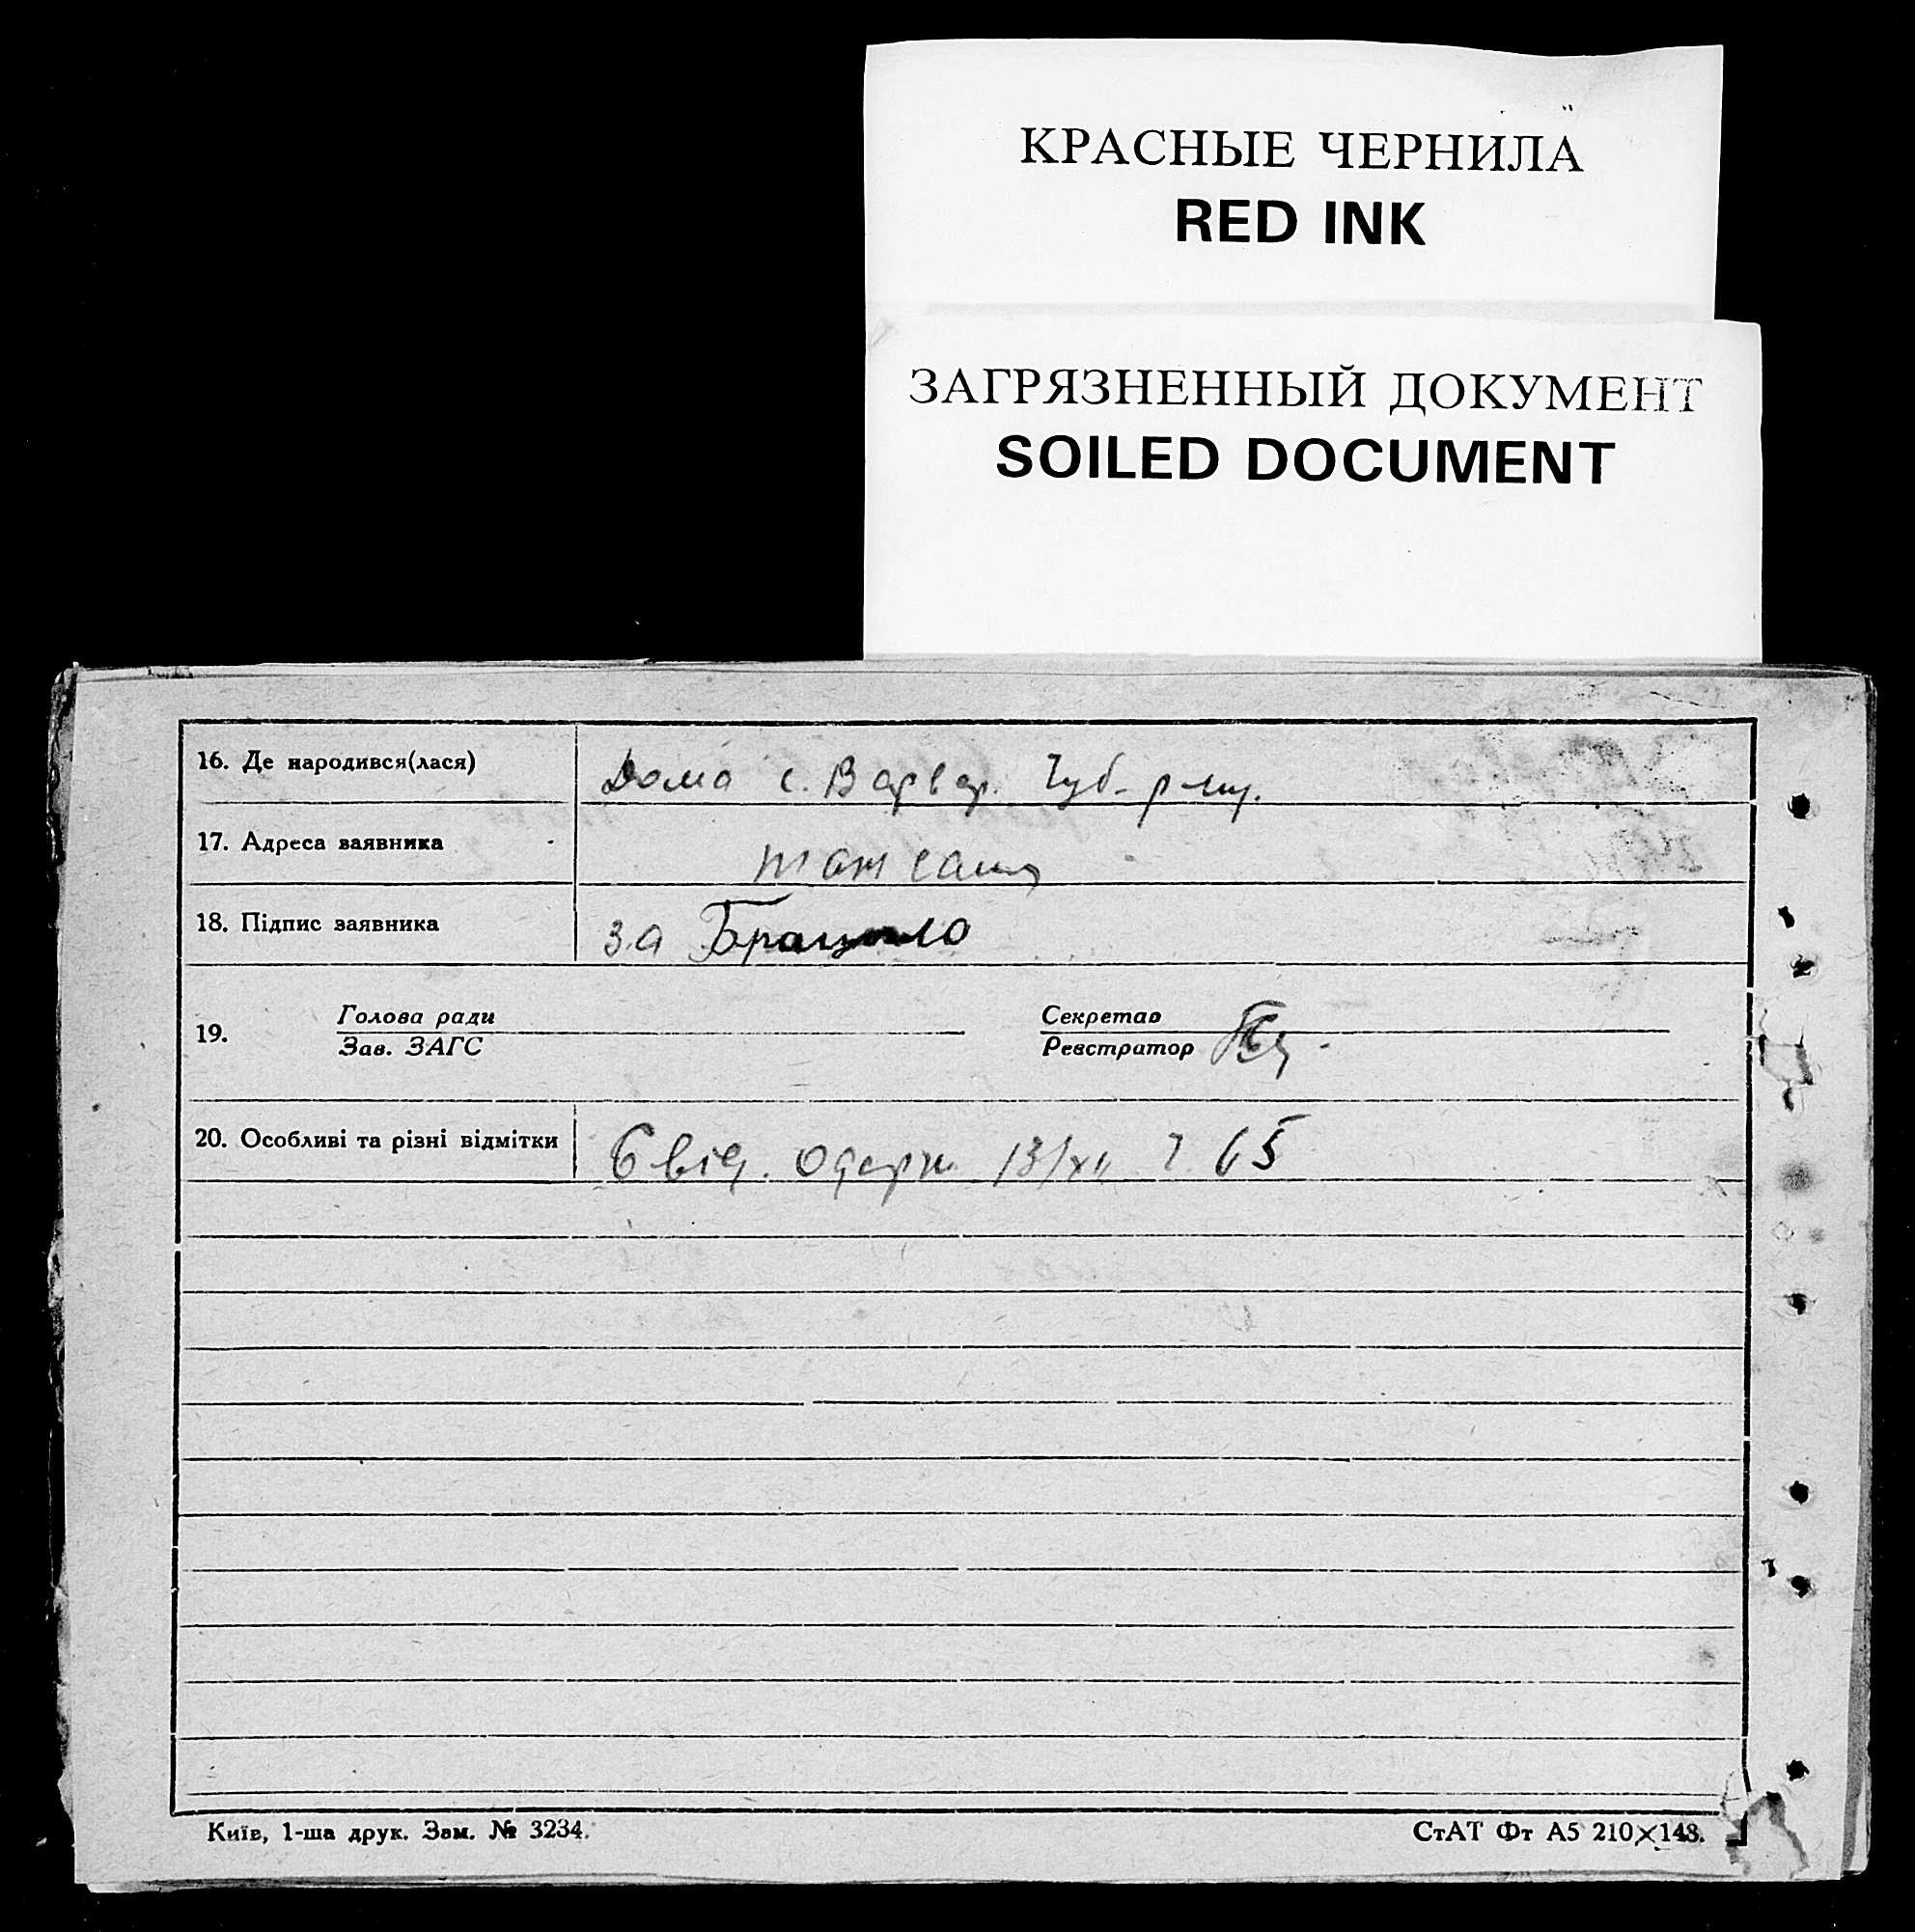 КРАСНЫЕ ЧЕРНИЛА
RED INK
ЗАГРЯЗНЕННЫЙ ДОКУМЕНТ
SOILED DOCUMENT
16. Де народився(лася) Дома с. Варвар. Чуб. р-ну.
17. Адреса заявника там само
18. Підпис заявника за
19. Голова ради
Зав. ЗАГС
Секретар
Реєстратор
20. Особливі та різні відмітки Свід. одерж. 13/XII Ч. 65
Київ, 1-ша друк. Зам. № 3234.
СтАТ Фт А5 210×148.